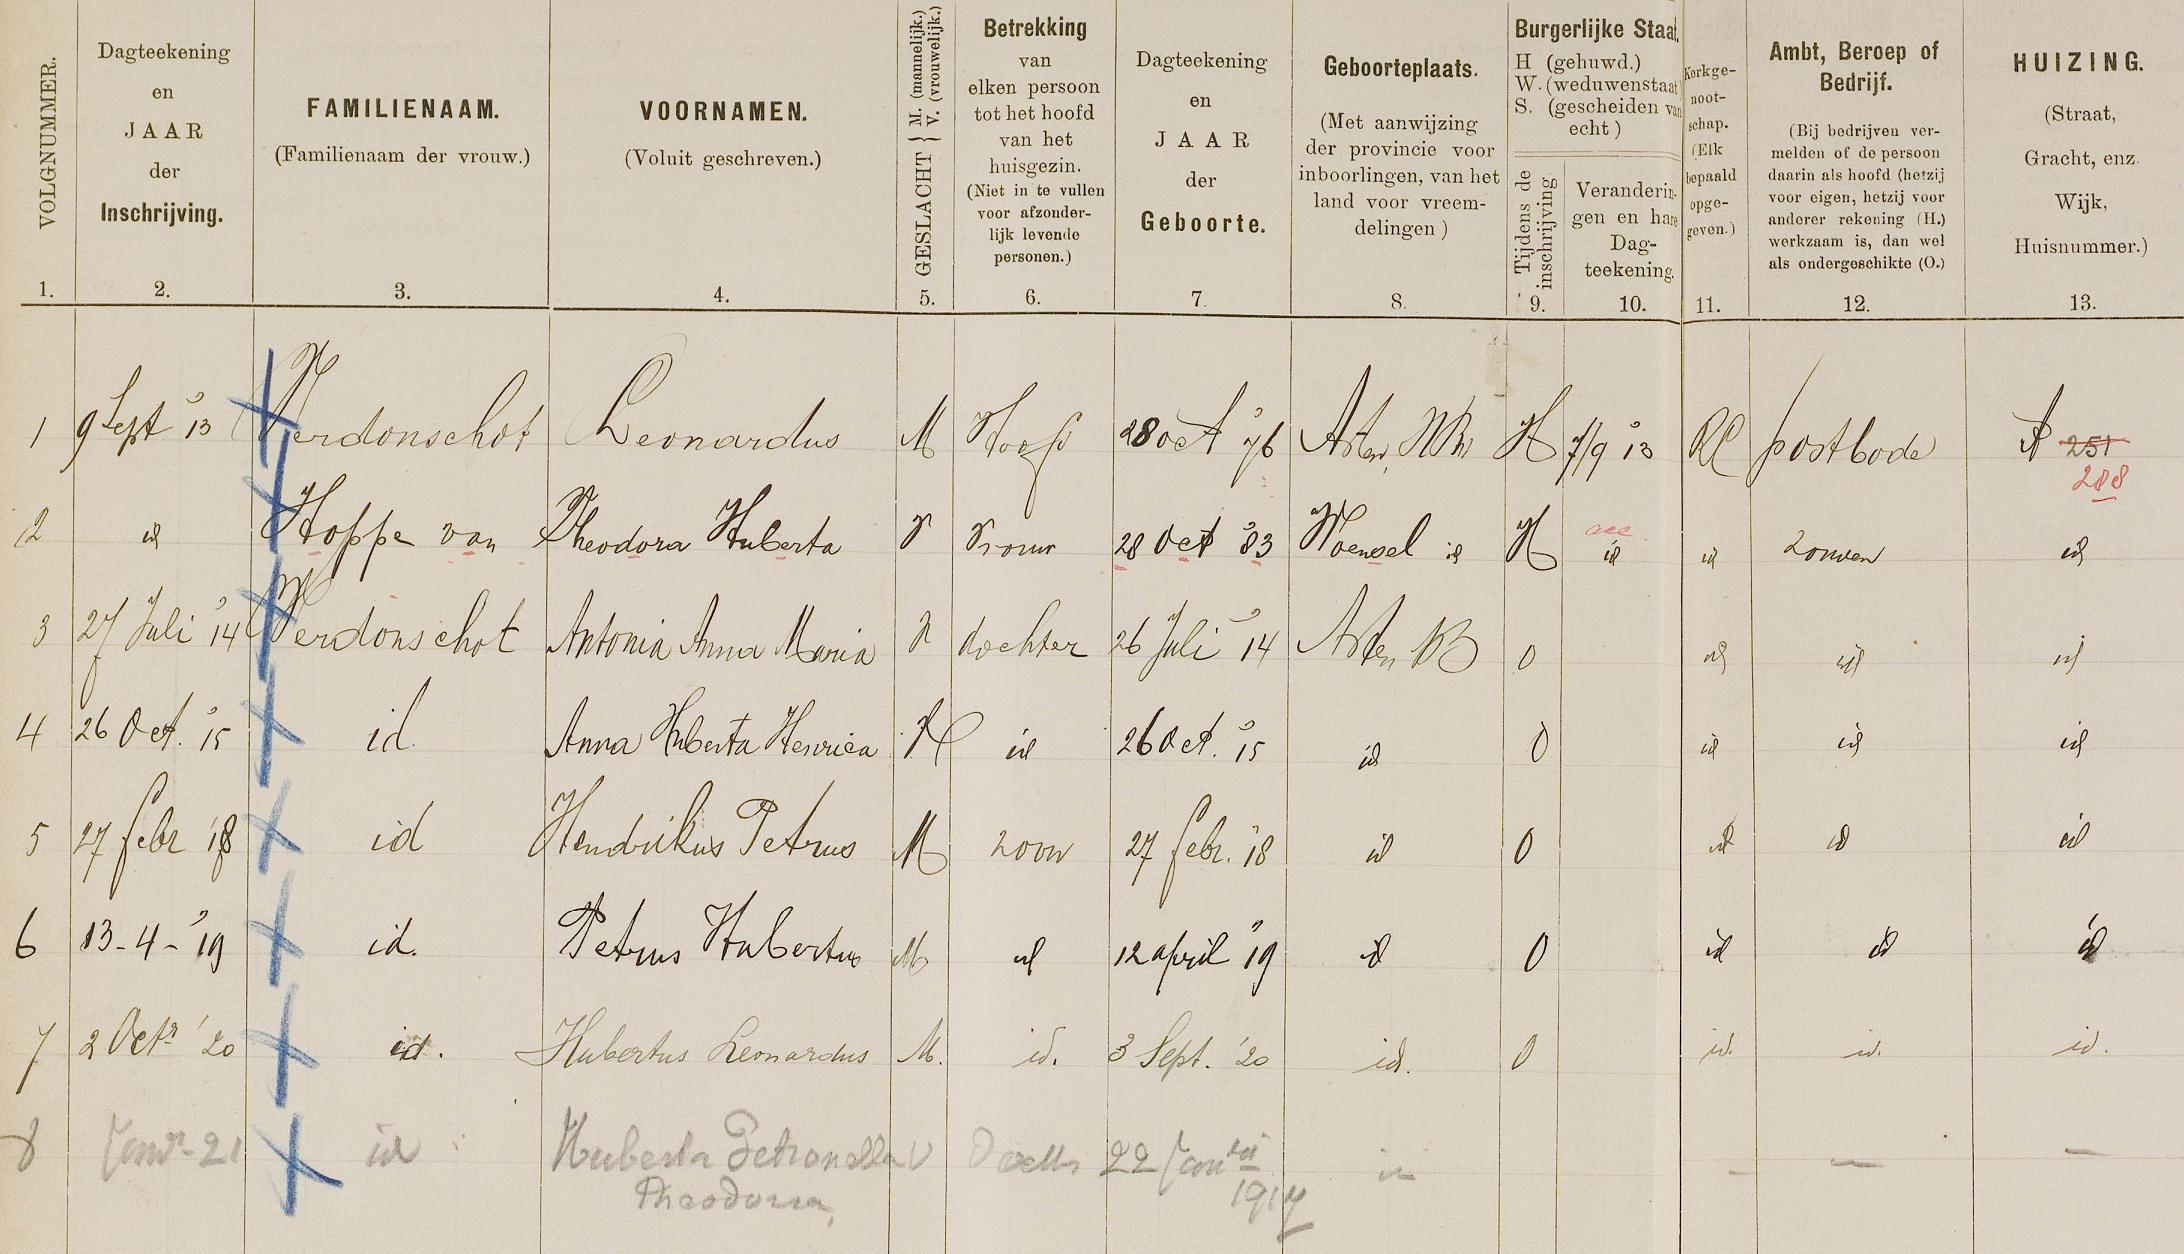 VOLGNUMMER.
1.
Dagteekening
en
JAAR
der
Inschrijving.
2.
FAMILIENAAM.
(Familienaam der vrouw.)
3.
VOORNAMEN.
(Voluit geschreven.)
4.
GESLACHT { M. (mannelijk.) V. (vrouwelijk.)
5.
Betrekking
van
elken persoon
tot het hoofd
van het
huisgezin.
(Niet in te vullen
voor afzonder-
lijk levende
personen.)
6.
Dagteekening
en
JAAR
der
Geboorte.
7.
Geboorteplaats.
(Met aanwijzing
der provincie voor
inboorlingen, van het
land voor vreem-
delingen)
8.
Burgerlijke Staat.
H (gehuwd.)
W. (weduwenstaat
S. (gescheiden van
echt)
Tijdens de
inschrijving
9.
Veranderin-
gen en hare
Dag-
teekening.
10.
Kerkge-
noot-
schap.
(Elk
bepaald
opge-
geven.)
11.
Ambt, Beroep of
Bedrijf.
(Bij bedrijven ver-
melden of de persoon
daarin als hoofd (hetzij
voor eigen, hetzij voor
anderer rekening (H.)
werkzaam is, dan wel
als ondergeschikte (O.)
12.
HUIZING.
(Straat,
Gracht, enz.
Wijk,
Huisnummer.)
13.
1 9 Sept '13 Verdonschot Leonardus M Hoofd 28 oct '76 Asten, NBr H 7/9 '13 RC postbode A 251
288
2 id Hoppe van Theodora Huberta V Vrouw 28 Oct '83 Woensel id H id id zonder id
3 27 Juli '14 Verdonschot Antonia Anna Maria V dochter 26 Juli '14 Asten NB O id id id
4 26 Oct. '15 id. Anna Huberta Henrica V id 26 Oct. '15 id O id id id
5 27 febr '18 id Hendrikus Petrus M zoon 27 febr. '18 id O id id id
6 13-4-'19 id. Petrus Hubertus M id 12 april '19 id O id id id
7 2 Octr '20 id. Hubertus Leonardus M. id. 3 Sept. '20 id. O id. id. id.
8 Janr- 21 id Huberta Petronella V Docht 22 Jan id - - -
Theodora,